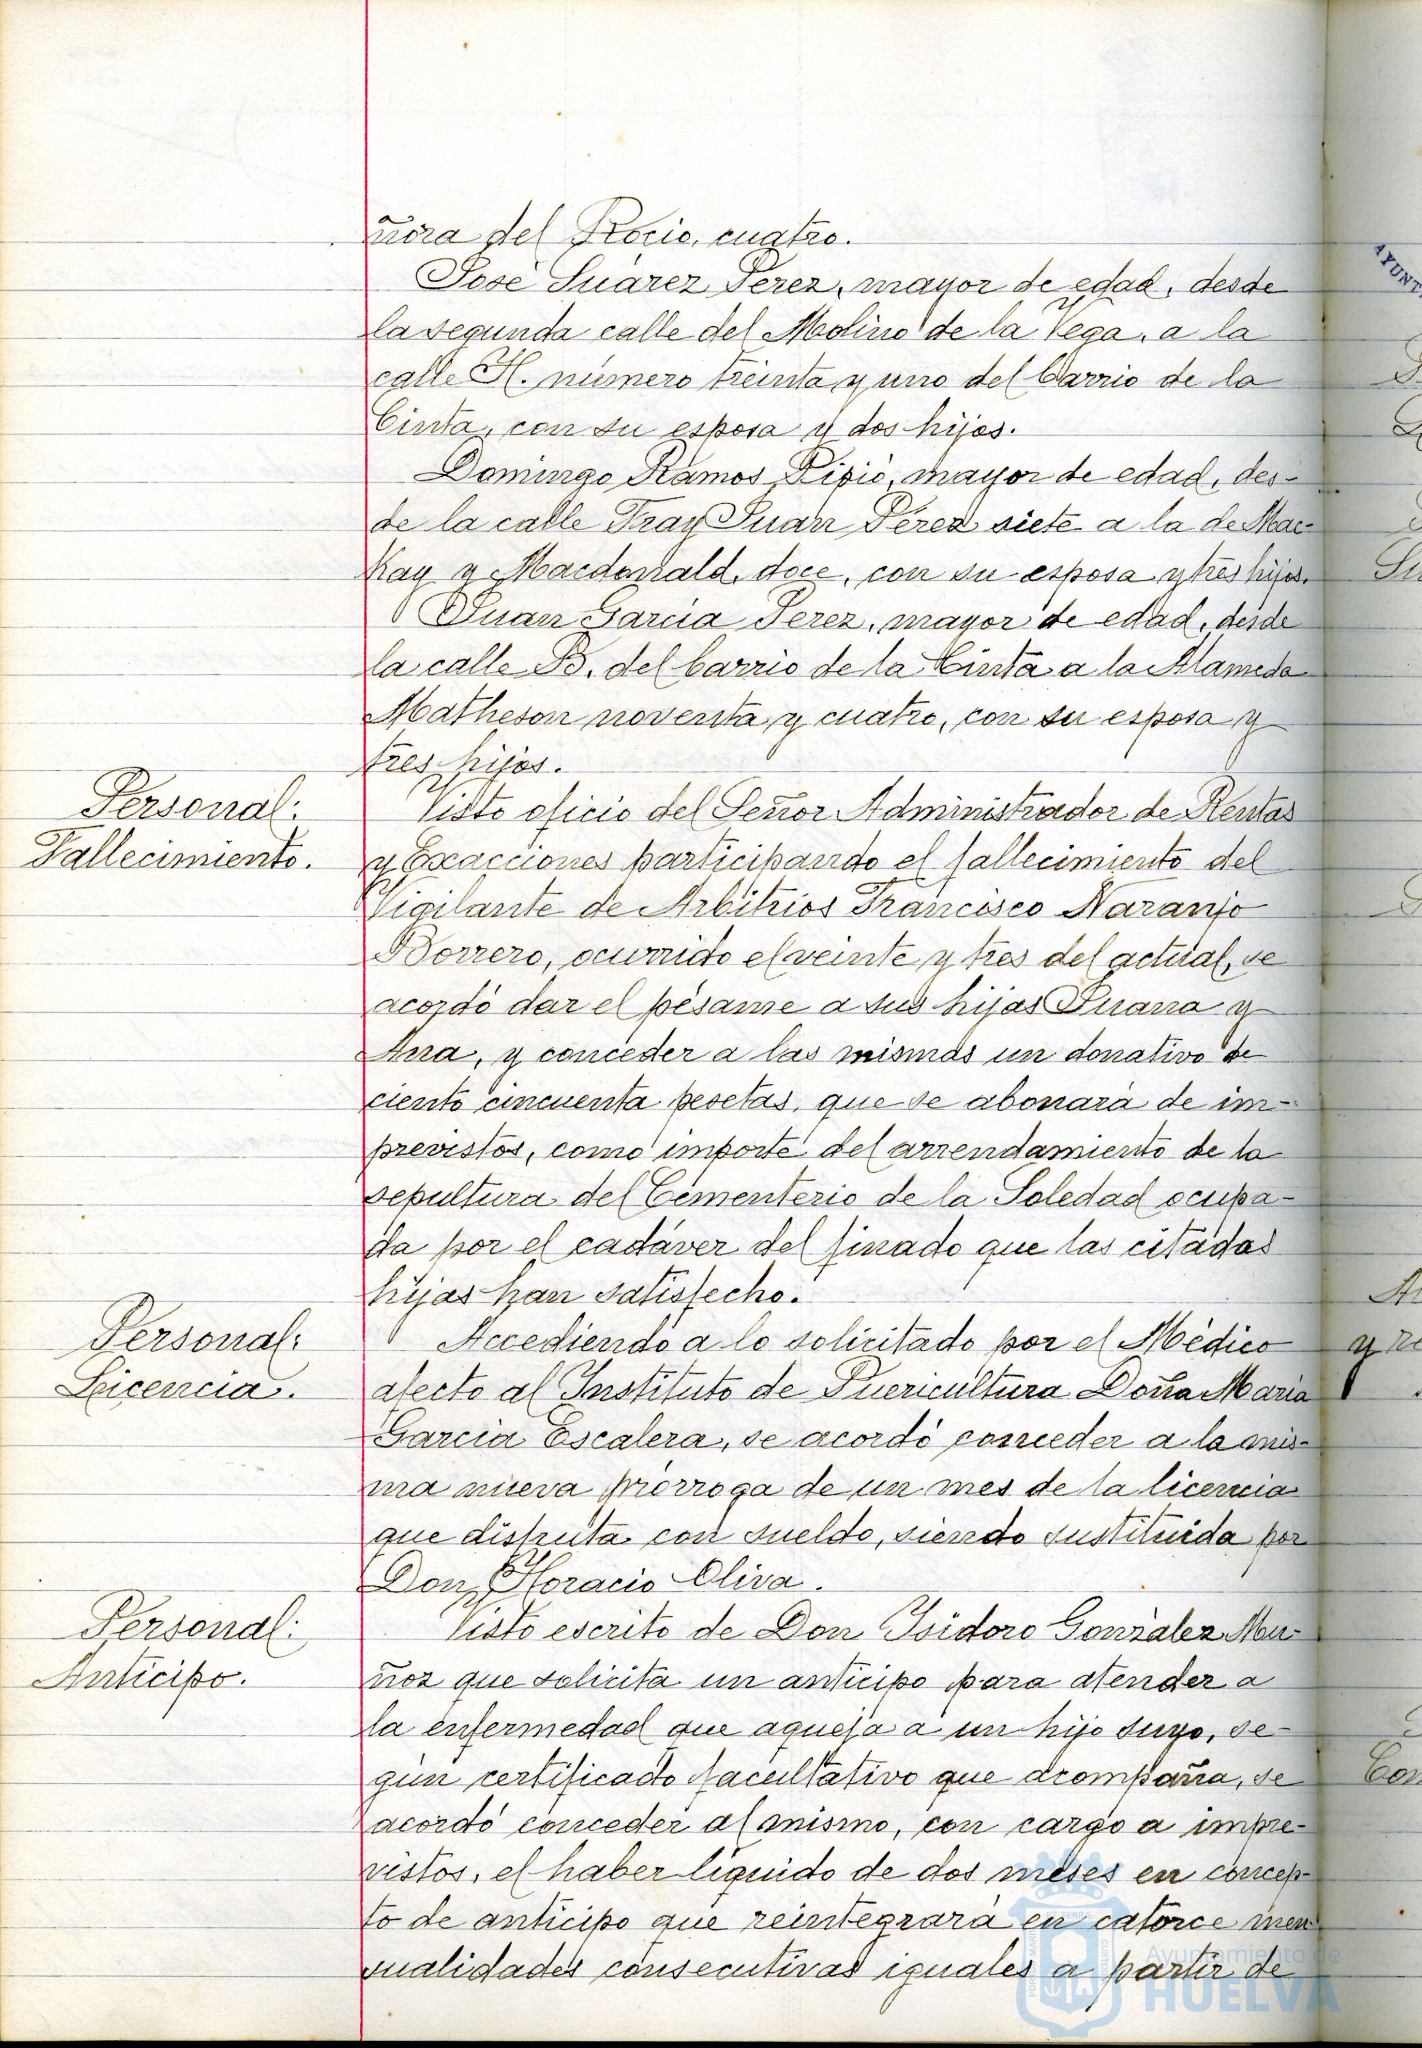 ñora del Rocio, cuatro.
José Suárez Pérez, mayor de edad, desde
la segunda calle del Molino de la Vega, a la
calle H. número treinta y uno del barrio de la
Cinta, con su esposa y dos hijos.
Domingo Ramos Pipió, mayor de edad, des-
de la calle Fray Juan Pérez siete a la de Mac-
Kay y Macdonald, doce, con su esposa y tres hijos.
Juan García Pérez, mayor de edad, desde
la calle B. del barrio de la Cinta a la Alameda
Matheson noventa y cuatro, con su esposa y
tres hijos.
Personal:
Fallecimiento.
Visto oficio del Señor Administrador de Rentas
y Exacciones participando el fallecimiento del
Vigilante de Arbitrios Francisco Naranjo
Borrero, ocurrido el veinte y tres del actual, se
acordó dar el pésame a sus hijas Juana y
Ana, y conceder a las mismas un donativo de
ciento cincuenta pesetas, que se abonará de im-
previstos, como importe del arrendamiento de la
sepultura del Cementerio de la Soledad ocupa-
da por el cadáver del finado que las citadas
hijas han satisfecho.
Personal:
Licencia.
Accediendo a lo solicitado por el Médico
afecto al Instituto de Puericultura Doña María
García Escalera, se acordó conceder a la mis-
ma nueva prórroga de un mes de la licencia
que disfruta con sueldo, siendo sustituida por
Don Horacio Oliva.
Personal:
Anticipo.
Visto escrito de Don Isidoro González Mu-
ñoz que solicita un anticipo para atender a
la enfermedad que aqueja a un hijo suyo, se-
gún certificado facultativo que acompaña, se
acordó conceder al mismo, con cargo a impre-
vistos, el haber líquido de dos meses en concep-
to de anticipo que reintegrará en catorce men
sualidades consecutivas iguales a partir de
Ayuntamiento de
HUELVA